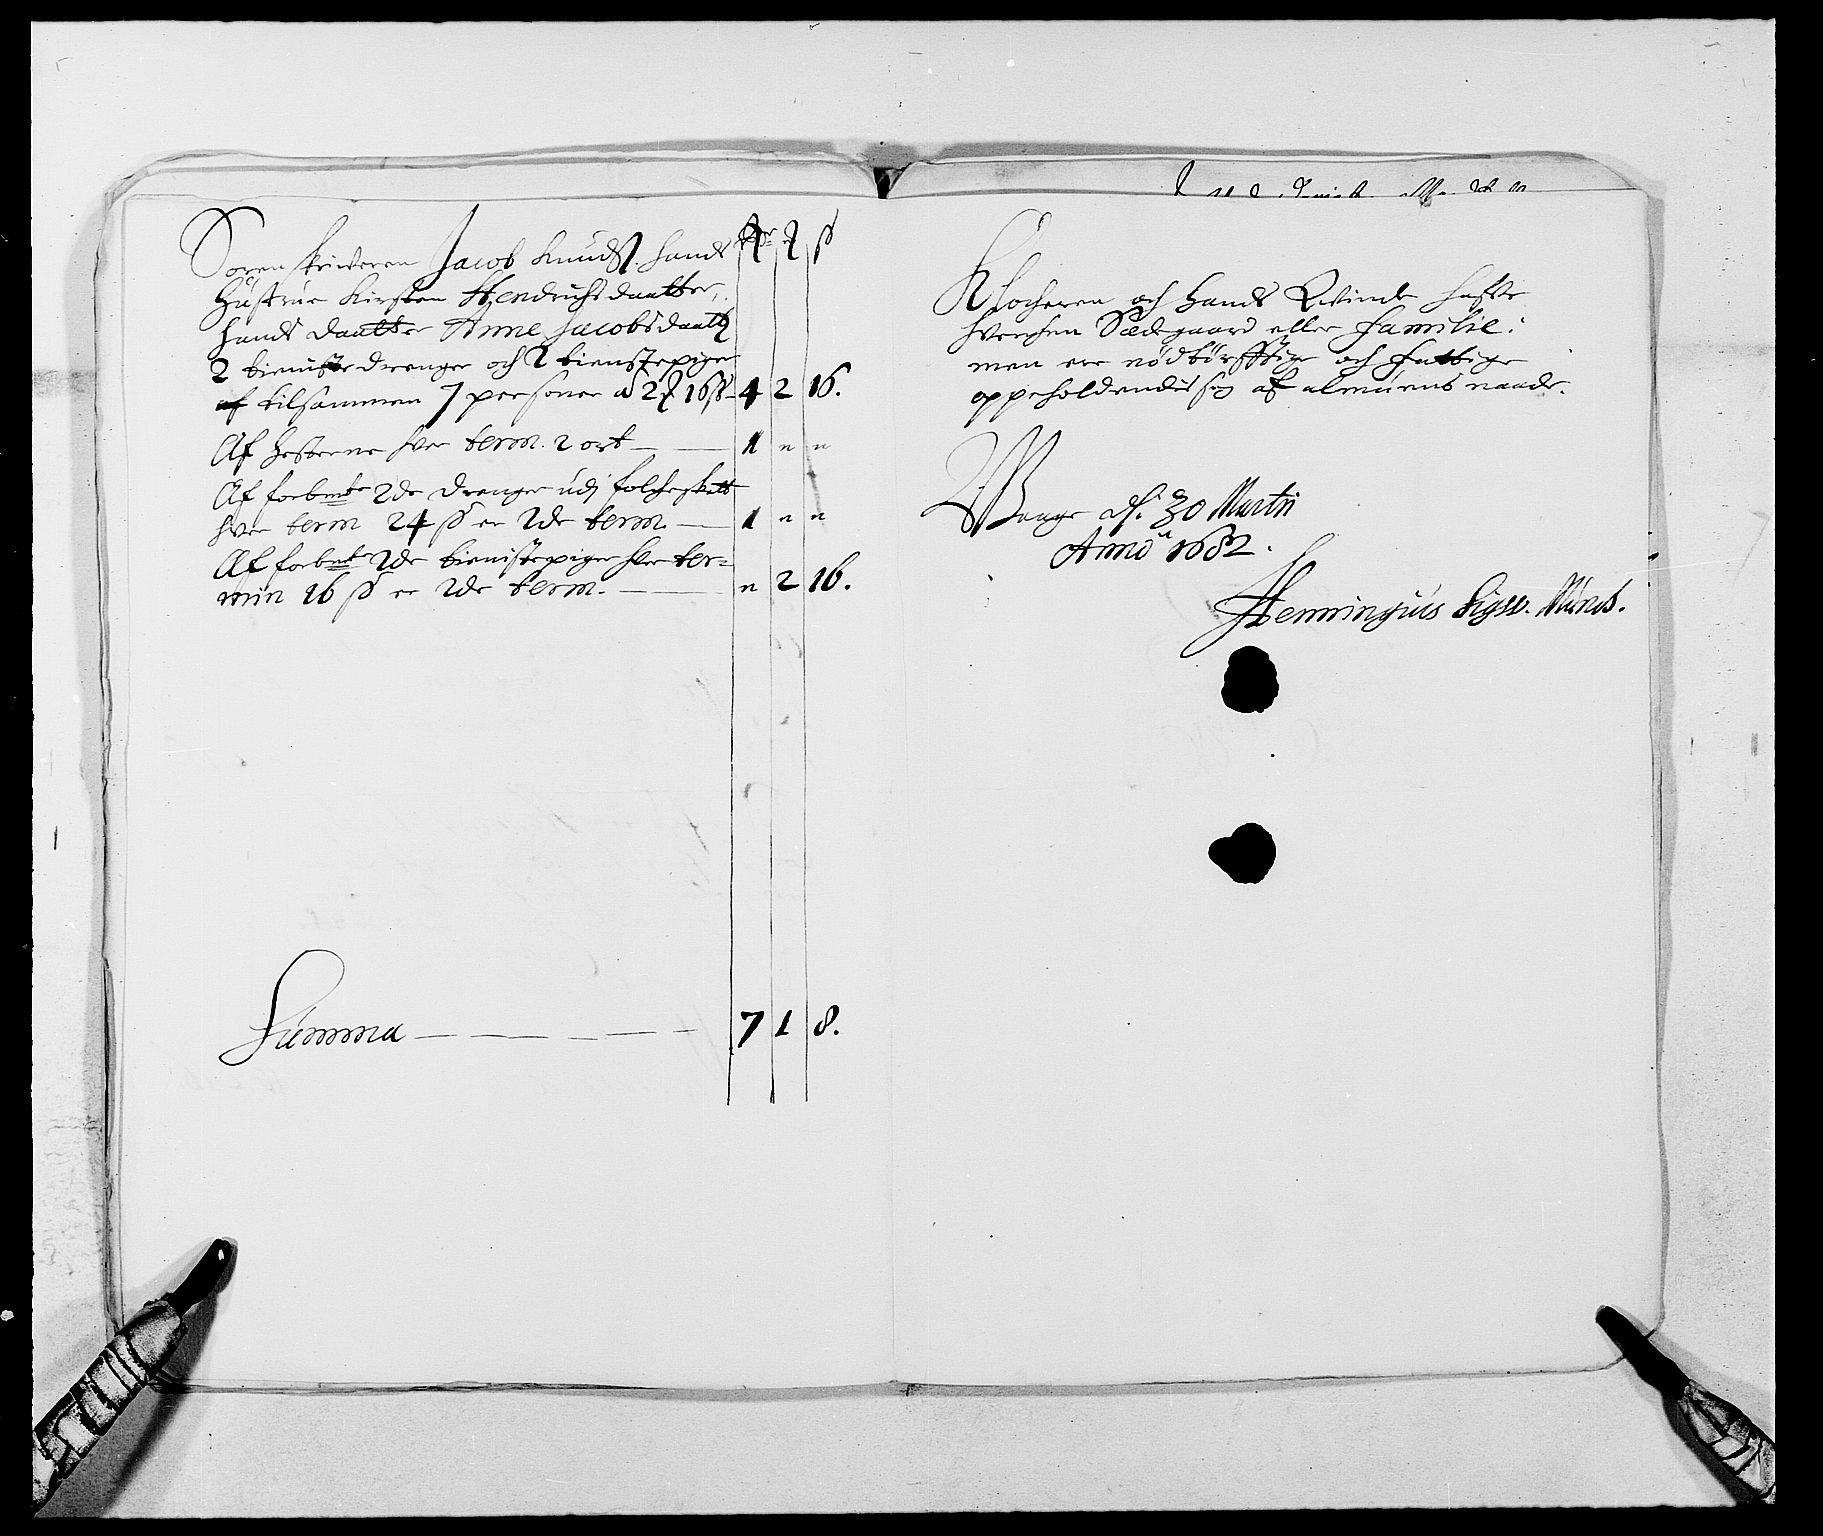 Sorenskriveren Jacob Knuds. hands
Hüstrue Kirsten Hendrichsdaatter,
hands daatter Anne Jacobsdaatter
2 tieniste drenge och 2 tienistepiger
af tilsammen 7 personer a 2 16 ß 4 2 16.
Af hesterne hver term. 2 ort 1 n n
Af forbmte 2de drenge udj folcheskatt
hver term 24 ß er 2de term. 1 n n
Af forbmte 2de tienistepiger hver ter=
min 16 ß er 2de term. n 2 16.
Summa 7 1 8.
Klocheren och hands Qvinde hafve
hverchen Sædegaard eller familie:
men ere nödtörfftige och fattige
oppeholdendis sig af almuens naade.
Vange d. 30 Martii
Anno 1682.
Henningius Sigv. Munch.